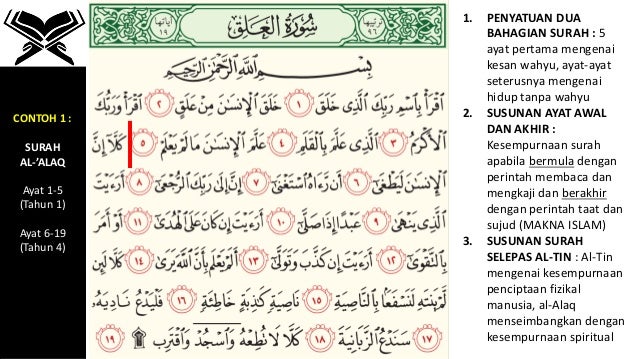 CONTOH 1 :
SURAH
AL-'ALAQ
Ayat 1-5
(Tahun 1)
Ayat 6-19
(Tahun 4)
ترتيبها
٩٦
سُورَةُ العَلَقِ
آياتها
١٩
بِسْمِ ٱللَّهِ ٱلرَّحْمَٰنِ ٱلرَّحِيمِ
ٱقْرَأْ بِٱسْمِ رَبِّكَ ٱلَّذِى خَلَقَ ١ خَلَقَ ٱلْإِنسَٰنَ مِنْ عَلَقٍ ٢ ٱقْرَأْ وَرَبُّكَ
ٱلْأَكْرَمُ ٣ ٱلَّذِى عَلَّمَ بِٱلْقَلَمِ ٤ عَلَّمَ ٱلْإِنسَٰنَ مَا لَمْ يَعْلَمْ ٥ كَلَّآ إِنَّ
ٱلْإِنسَٰنَ لَيَطْغَىٰٓ ٦ أَن رَّءَاهُ ٱسْتَغْنَىٰٓ ٧ إِنَّ إِلَىٰ رَبِّكَ ٱلرُّجْعَىٰٓ ٨ أَرَءَيْتَ
ٱلَّذِى يَنْهَىٰ ٩ عَبْدًا إِذَا صَلَّىٰٓ ١٠ أَرَءَيْتَ إِن كَانَ عَلَى ٱلْهُدَىٰٓ ١١ أَوْ أَمَرَ
بِٱلتَّقْوَىٰٓ ١٢ أَرَءَيْتَ إِن كَذَّبَ وَتَوَلَّىٰٓ ١٣ أَلَمْ يَعْلَم بِأَنَّ ٱللَّهَ يَرَىٰ ١٤ كَلَّا لَئِن
لَّمْ يَنتَهِ لَنَسْفَعًۢا بِٱلنَّاصِيَةِ ١٥ نَاصِيَةٍ كَٰذِبَةٍ خَاطِئَةٍ ١٦ فَلْيَدْعُ نَادِيَهُۥ
١٧ سَنَدْعُ ٱلزَّبَانِيَةَ ١٨ كَلَّا لَا تُطِعْهُ وَٱسْجُدْ وَٱقْتَرِب ۩ ١٩
1. PENYATUAN DUA
BAHAGIAN SURAH : 5
ayat pertama mengenai
kesan wahyu, ayat-ayat
seterusnya mengenai
hidup tanpa wahyu
2. SUSUNAN AYAT AWAL
DAN AKHIR :
Kesempurnaan surah
apabila bermula dengan
perintah membaca dan
mengkaji dan berakhir
dengan perintah taat dan
sujud (MAKNA ISLAM)
3. SUSUNAN SURAH
SELEPAS AL-TIN : Al-Tin
mengenai kesempurnaan
penciptaan fizikal
manusia, al-Alaq
menseimbangkan dengan
kesempurnaan spiritual